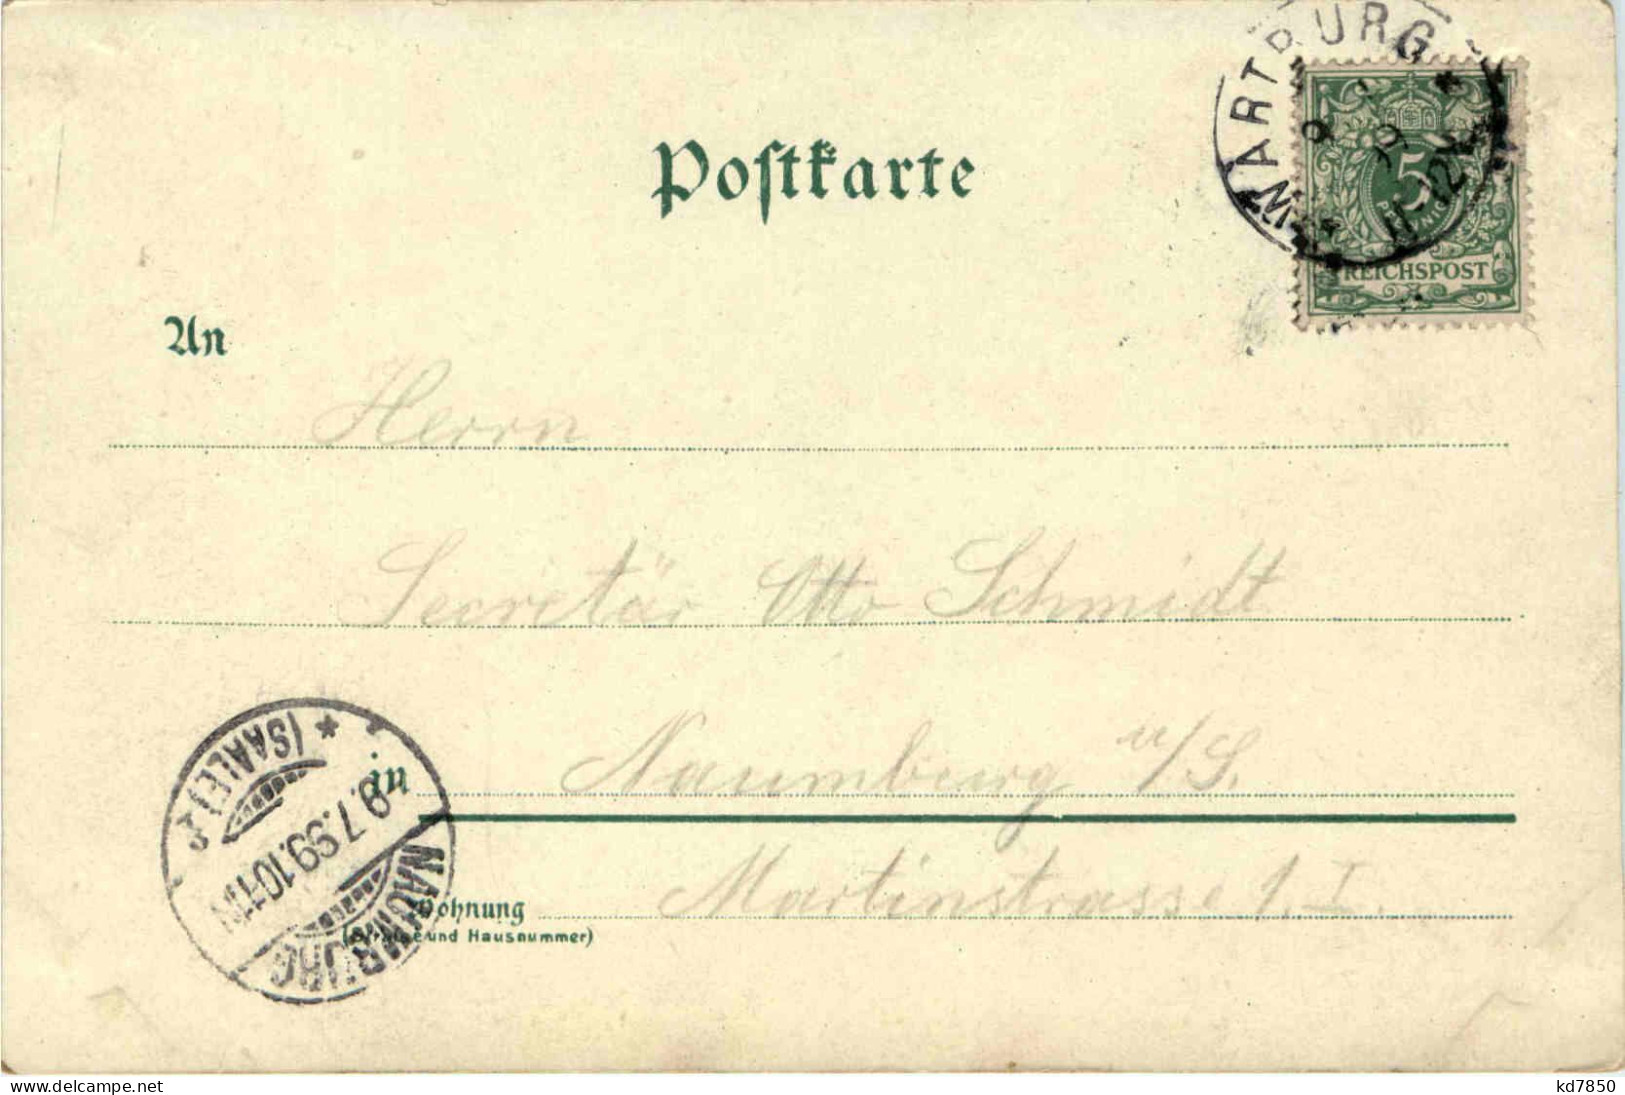 WARTBURG
Postkarte
5
PFENNIG
REICHSPOST
An
Herrn
Secretär Otto Schmidt
in Naumburg a/S.
Wohnung Martinstrasse 1. I.
(Strasse und Hausnummer)
NAUMBURG
9.7.99.10-11N
(SAALE)
www.delcampe.net
kd7850